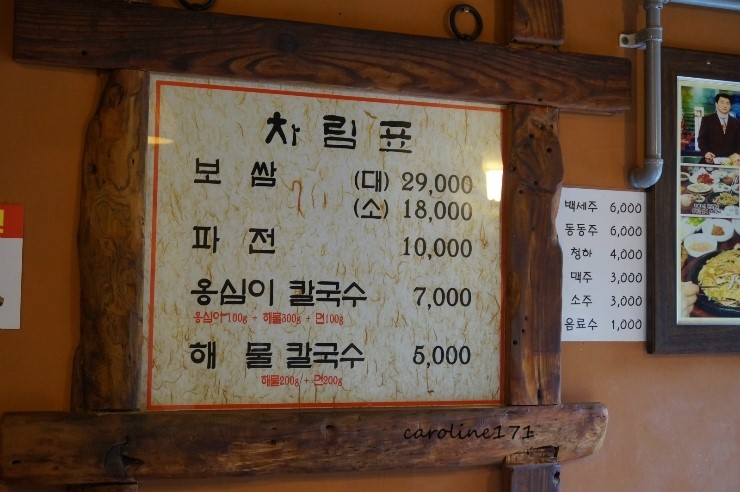 차림표
보쌈 (대) 29,000
(소) 18,000
파전 10,000
옹심이 칼국수 7,000
옹심이100g + 해물300g + 면100g
해물 칼국수 5,000
해물200g + 면200g
백세주 6,000
동동주 6,000
청하 4,000
맥주 3,000
소주 3,000
음료수 1,000
caroline171